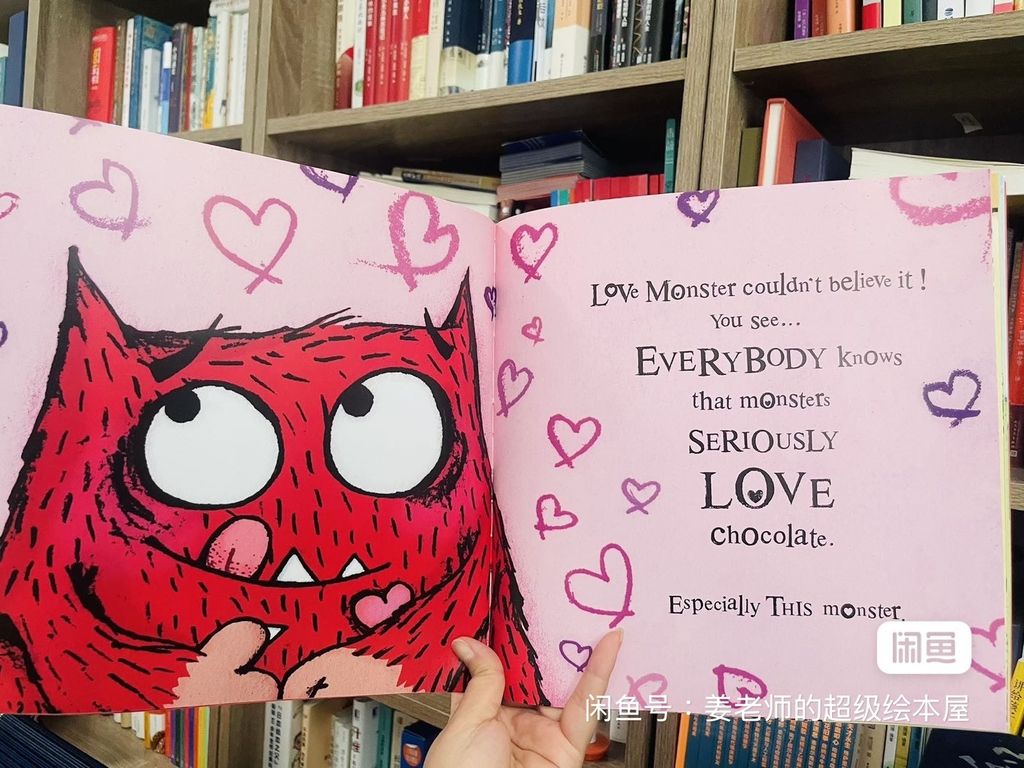 Love Monster couldn't believe it!
You see...
EVERYBODY knows
that monsters
SERIOUSLY
LOVE
chocolate.
Especially THIS monster.
闲鱼
闲鱼号：姜老师的超级绘本屋